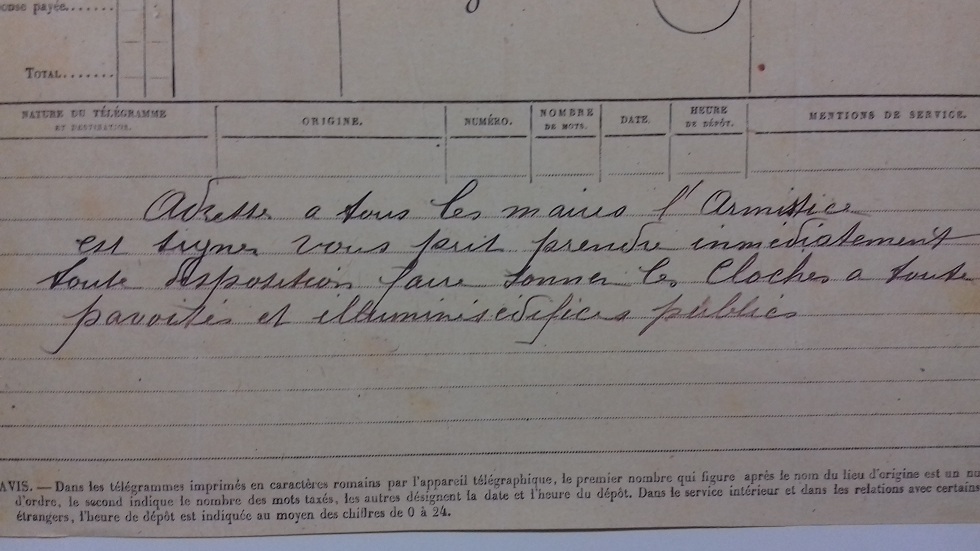 onse payée......
TOTAL.......
NATURE DU TÉLÉGRAMME
ET DESTINATION.
ORIGINE.
NUMÉRO.
NOMBRE
DE MOTS.
DATE.
HEURE
DE DÉPÔT.
MENTIONS DE SERVICE.
Adresse a tous les maires l'Armistice
est signer vous prit prendre immediatement
toute disposition faire sonner les Cloches a toute
pavoités et illuminés edifices publics
AVIS. — Dans les télégrammes imprimés en caractères romains par l'appareil télégraphique, le premier nombre qui figure après le nom du lieu d'origine est un nu
d'ordre, le second indique le nombre des mots taxés, les autres désignent la date et l'heure du dépôt. Dans le service intérieur et dans les relations avec certains
étrangers, l'heure de dépôt est indiquée au moyen des chiffres de 0 à 24.